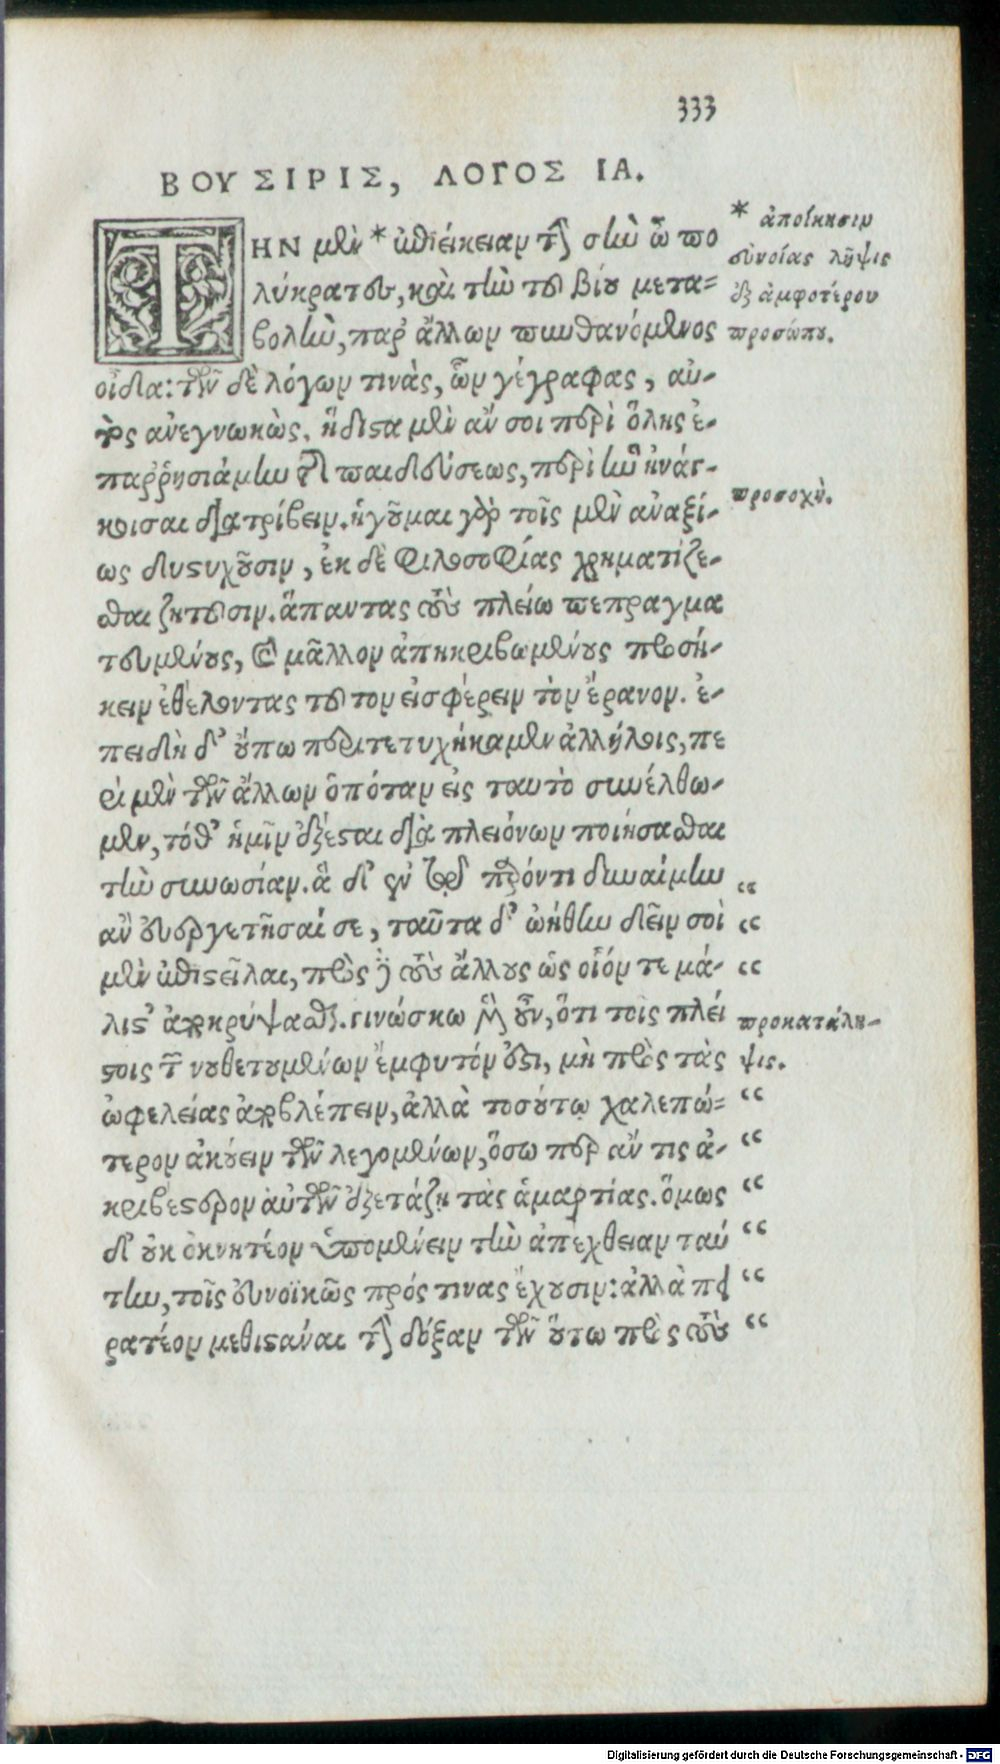 333
ΒΟΥΣΙΡΙΣ, ΛΟΓΟΣ ΙΑ.
ΤΗΝ μὲν * ἐπιείκειαν τὴν σὴν ὦ πο
λύκρατες, καὶ τὴν τοῦ βίου μετα=
βολὴν, παρ' ἄλλων πυνθανόμενος
οἶδα: τῶν δὲ λόγων τινὰς, ὧν γέγραφας, αὐ-
τὸς ἀνεγνωκὼς. ἥδιστα μὲν ἄν σοι περὶ ὅλης ἐ-
παῤῥησιάμην τῆς παιδεύσεως, περὶ ἣν ἠνάγ-
κασαι διατρίβειν. ἡγοῦμαι γὰρ τοῖς μὲν ἀναξί-
ως δυστυχοῦσιν, ἐκ δὲ φιλοσοφίας χρηματίζε-
σθαι ζητοῦσιν. ἅπαντας τοὺς πλείω πεπραγμα
τευμένους, καὶ μᾶλλον ἀπηκριβωμένους προσή-
κειν ἐθέλοντας τοῦτον εἰσφέρειν τὸν ἔρανον. ἐ-
πειδὴ δ' οὔπω περιτετυχήκαμεν ἀλλήλοις, πε
ρὶ μὲν τῶν ἄλλων ὁπόταν εἰς ταυτὸ συνέλθω-
μεν, τόθ' ἡμῖν ἐξέσται διὰ πλειόνων ποιήσασθαι
τὴν συνουσίαν. ἃ δ' ἐν τῷ παρόντι δυναίμην
ἂν εὐεργετῆσαί σε, ταῦτα δ' ᾠήθην δεῖν σοὶ
μὲν ἐπιστεῖλαι, πρὸς δὲ τοὺς ἄλλους ὡς οἷόν τε μά-
λιστ' ἀποκρύψασθαι. γινώσκω μὲν οὖν, ὅτι τοῖς πλεί
στοις τῶν νουθετουμένων ἔμφυτόν ἐστι, μὴ πρὸς τὰς
ὠφελείας ἀποβλέπειν, ἀλλὰ τοσούτῳ χαλεπώ=
τερον ἀκούειν τῶν λεγομένων, ὅσω περ ἄν τις ἀ-
κριβέστερον αὐτῶν ἐξετάζῃ τὰς ἁμαρτίας. ὅμως
δ' οὐκ ὀκνητέον ὑπομένειν τὴν ἀπέχθειαν ταύ
την, τοῖς εὐνοϊκῶς πρός τινας ἔχουσιν: ἀλλὰ πει
ρατέον μεθιστάναι τὴν δόξαν τῶν οὕτω πρὸς τοὺς
* ἀποίκησιν
εὐνοίας λῆψις
ἐξ ἀμφοτέρου
προσώπου.
προσοχὴ.
προκατάλη-
ψις.
Digitalisierung gefördert durch die Deutsche Forschungsgemeinschaft - DFG